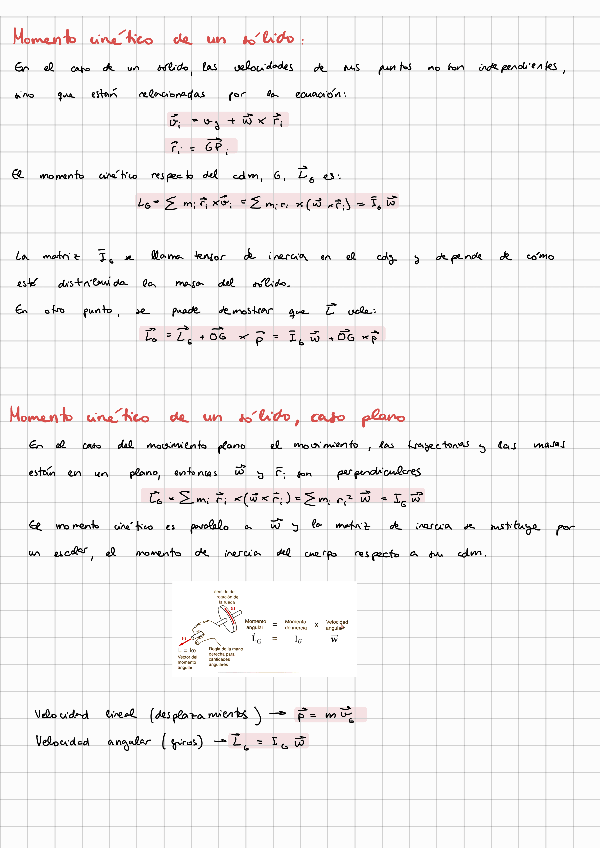 Momento cinético de un sólido:
En el caso de un sólido, las velocidades de sus puntos no son independientes,
sino que están relacionadas por la ecuación:
v⃗ᵢ = v_g + w⃗ × r⃗ᵢ
r⃗ᵢ = G⃗Pᵢ
El momento cinético respecto del cdm, G, L⃗_G es:
L_G = ∑ mᵢ r⃗ᵢ × v⃗ᵢ = ∑ mᵢ rᵢ × (w⃗ × r⃗ᵢ) = Ī_G w⃗
La matriz Ī_G se llama tensor de inercia en el cdg y depende de cómo
esté distribuida la masa del sólido.
En otro punto, se puede demostrar que L⃗ vale:
L⃗₀ = L⃗_G + O⃗G × p⃗ = Ī_G w⃗ + O⃗G × p⃗
Momento cinético de un sólido, caso plano
En el caso del movimiento plano el movimiento, las trayectorias y las masas
están en un plano, entonces w⃗ y r⃗ᵢ son perpendiculares
L⃗_G = ∑ mᵢ r⃗ᵢ × (w⃗ × r⃗ᵢ) = ∑ mᵢ rᵢ² w⃗ = I_G w⃗
El momento cinético es paralelo a w⃗ y la matriz de inercia se sustituye por
un escalar, el momento de inercia del cuerpo respecto a su cdm.
rotación de
la rueda
Momento angular = Momento de inercia × Velocidad angular
L_G = I_G w
= Iω
Vector del
momento
angular
Regla de la mano
derecha para
cantidades
angulares
Velocidad lineal (desplazamientos) → p⃗ = m v⃗_G
Velocidad angular (giros) → L⃗_G = I_G w⃗